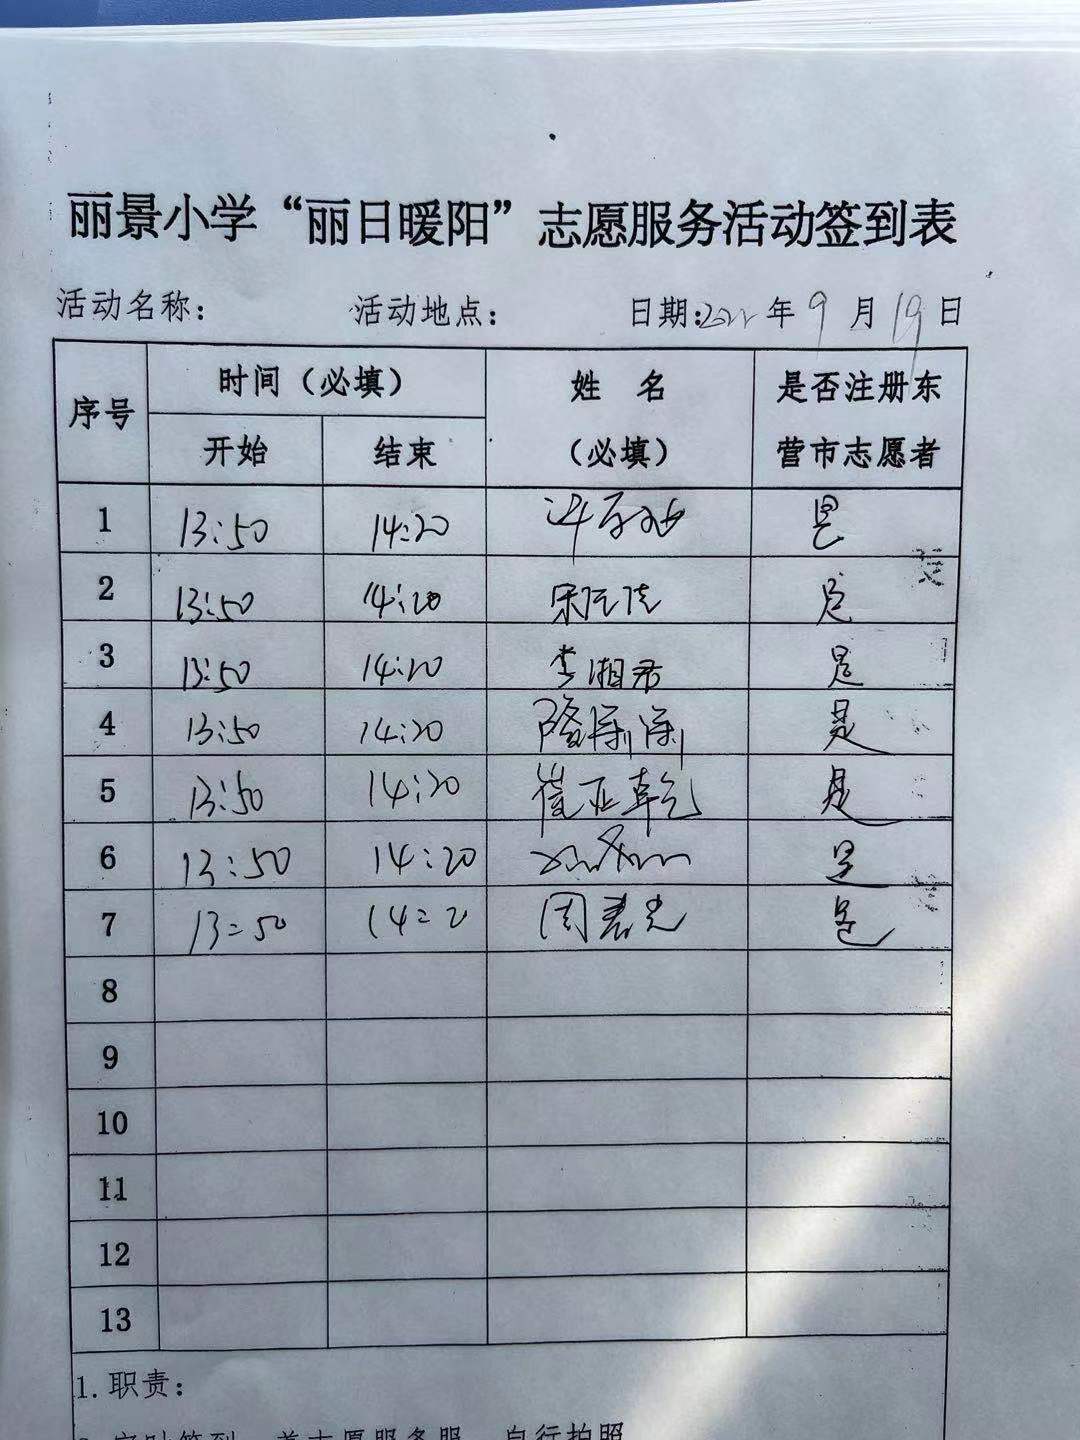 丽景小学“丽日暖阳”志愿服务活动签到表
活动名称： 活动地点： 日期：2022年9月19日
序号 时间（必填） 姓 名（必填） 是否注册东营市志愿者
开始 结束
1 13:50 14:20 是
2 13:50 14:20 是
3 13:50 14:20 李湘君 是
4 13:50 14:20 是
5 13:50 14:20 崔亚乾 是
6 13:50 14:20 是
7 13:50 14:2 周春光 是
8
9
10
11
12
13
1.职责：